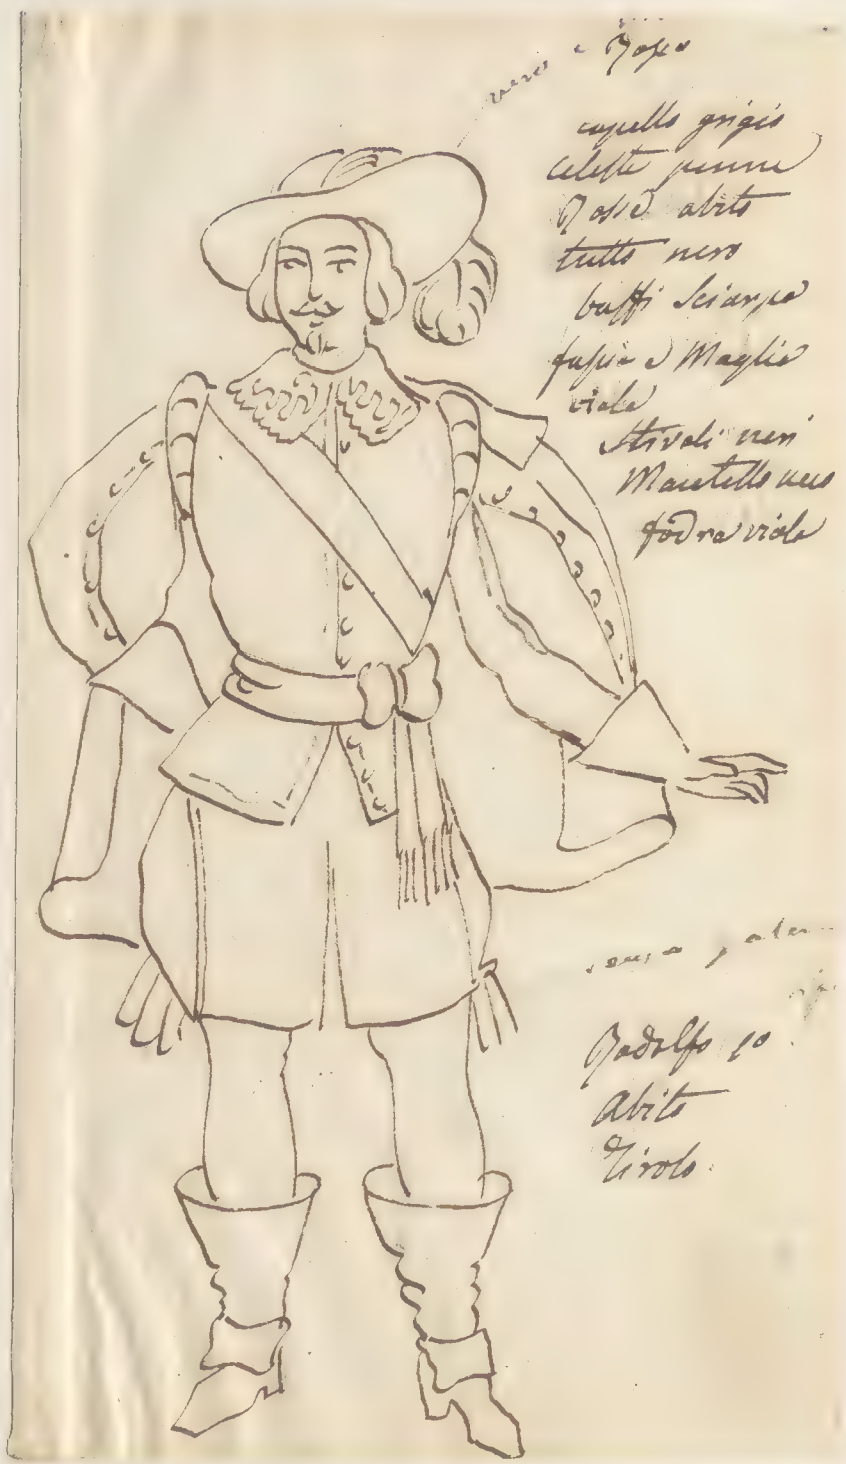 nero e Rosso
capello grigio
celeste penne
Rosse abito
tutto nero
buffi Sciarpa
fascia e Maglia
viola
Stivali neri
Mantello nero
fodra viola
senza
Rodolfo po
Abito
Tirolo